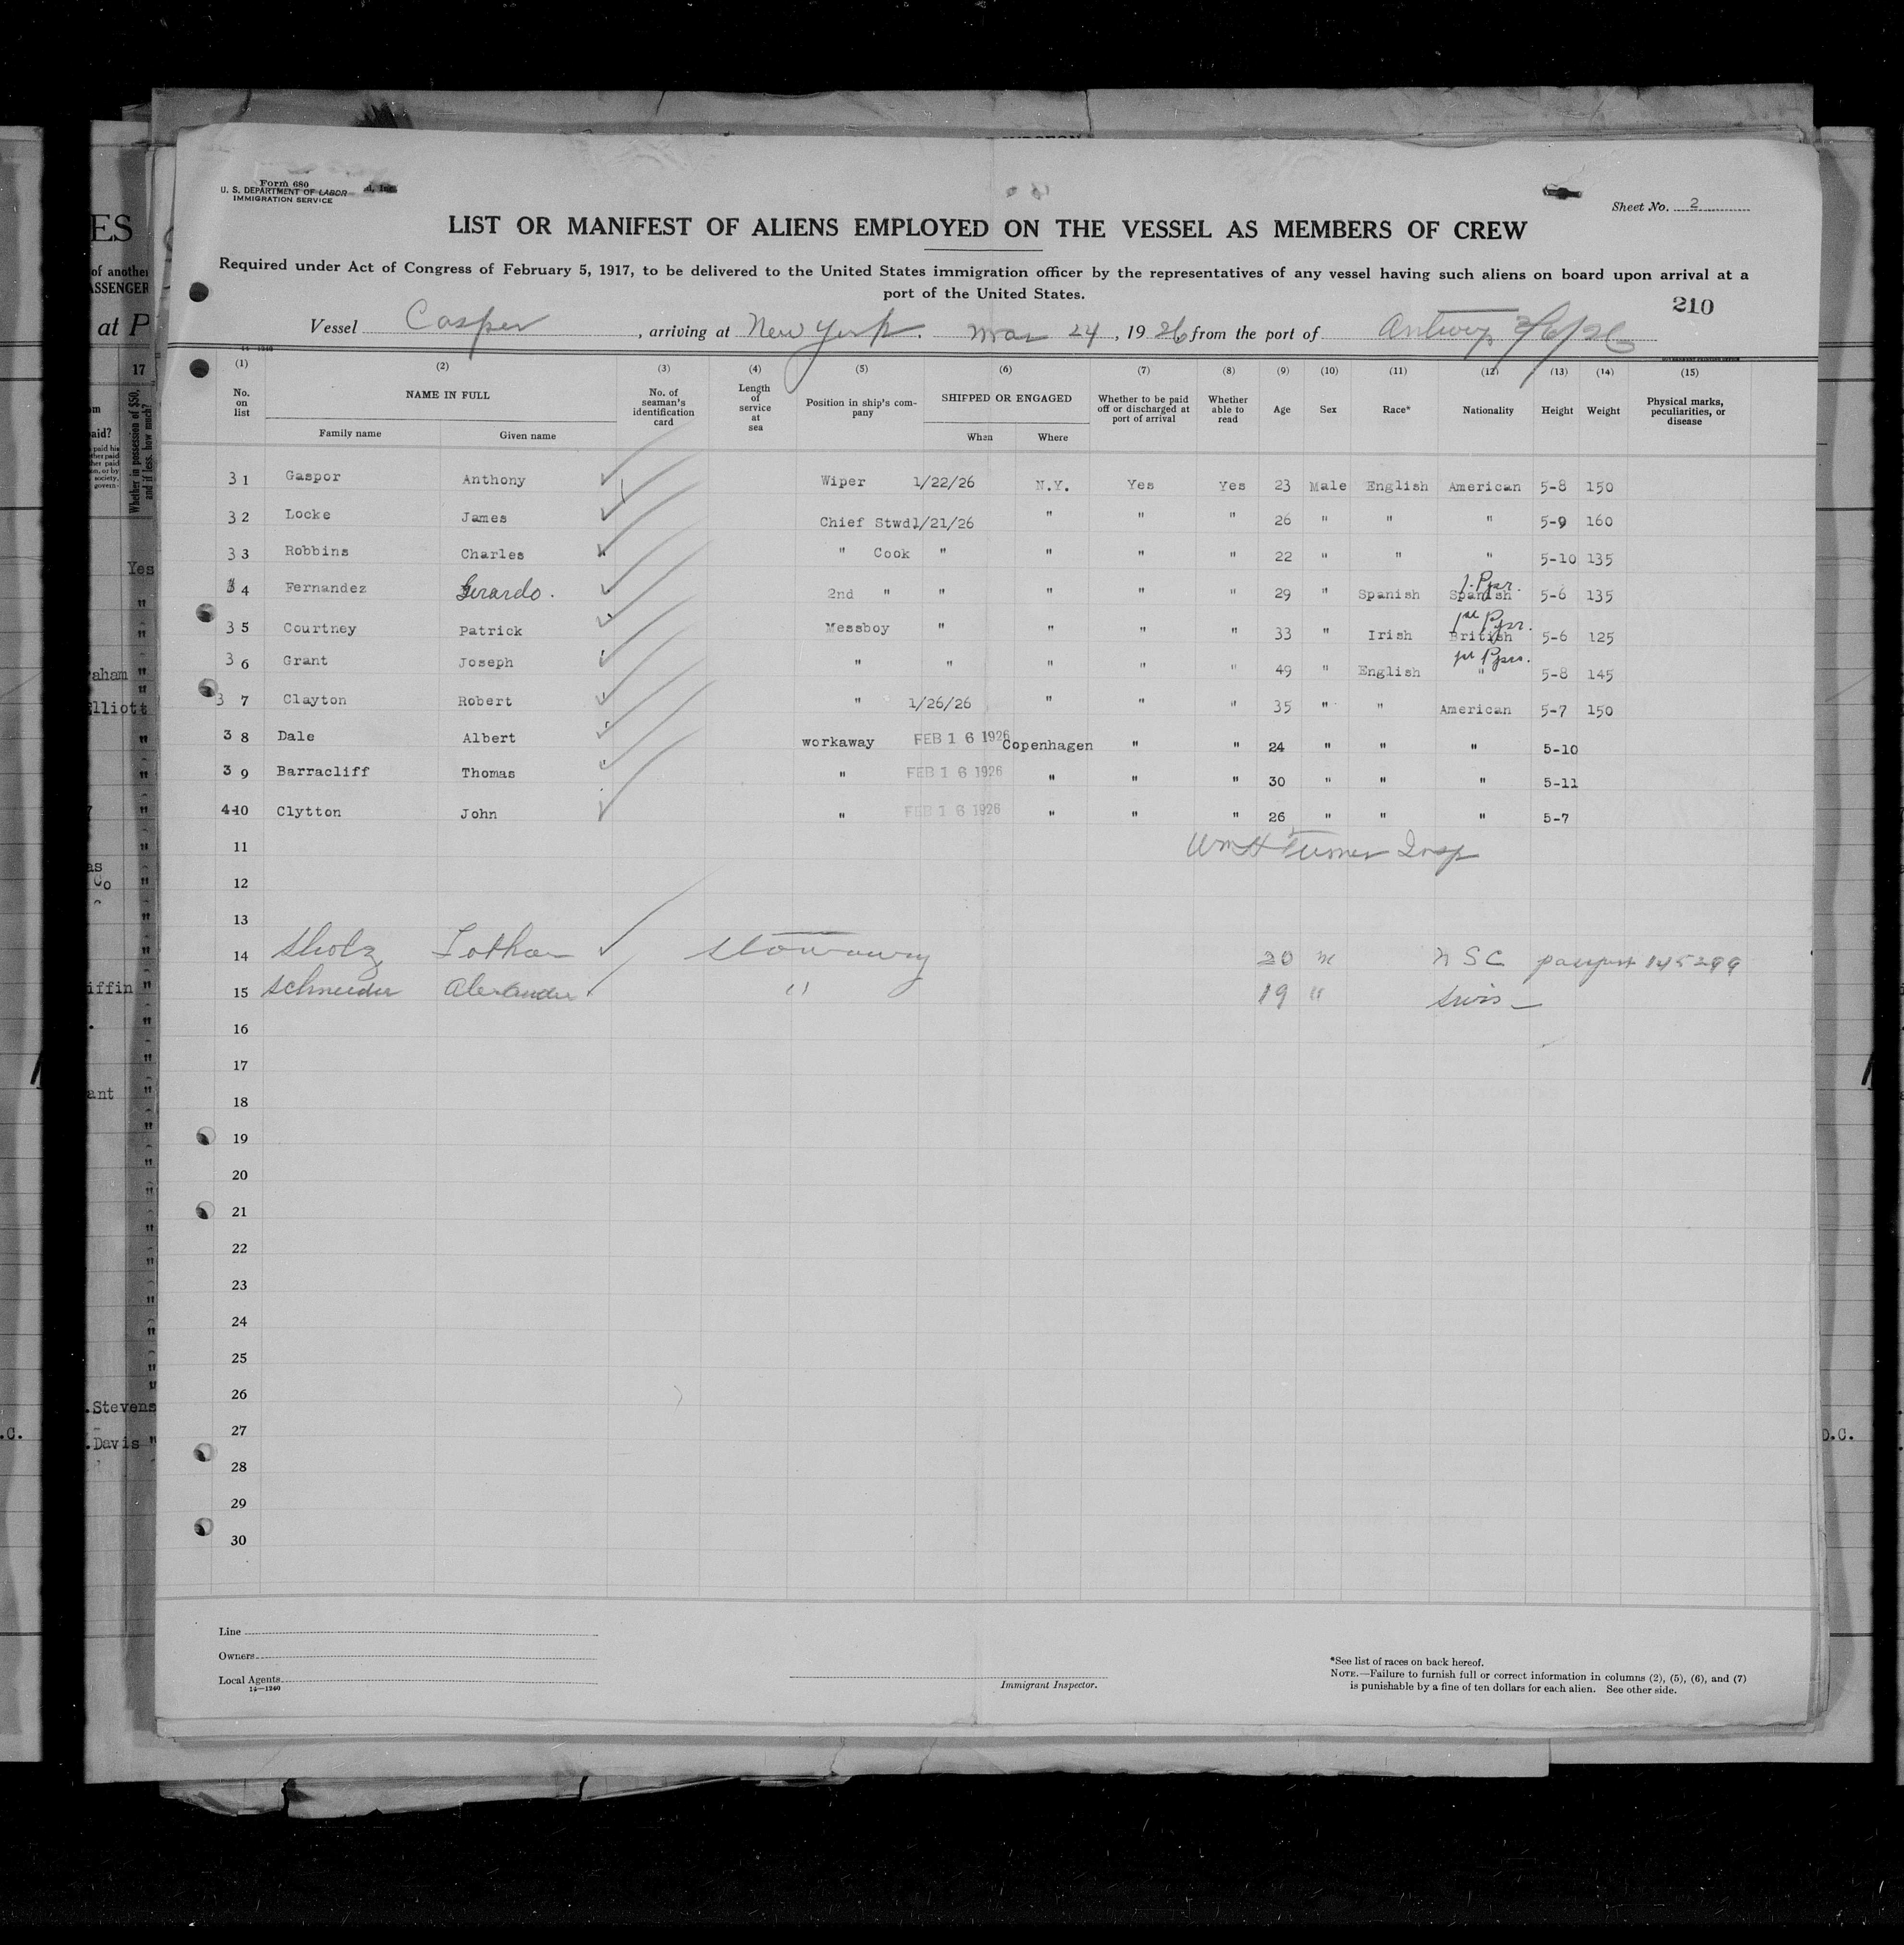 Form 680
U. S. DEPARTMENT OF LABOR
IMMIGRATION SERVICE
Sheet No. 2
LIST OR MANIFEST OF ALIENS EMPLOYED ON THE VESSEL AS MEMBERS OF CREW
Required under Act of Congress of February 5, 1917, to be delivered to the United States immigration officer by the representatives of any vessel having such aliens on board upon arrival at a
port of the United States.
210
Vessel Casper, arriving at New York. Mar 24, 1926 from the port of Antwerp 3/6/26
(1) (2) (3) (4) (5) (6) (7) (8) (9) (10) (11) (12) (13) (14) (15)
No. on list NAME IN FULL No. of seaman's identification card Length of service at sea Position in ship's company SHIPPED OR ENGAGED Whether to be paid off or discharged at port of arrival Whether able to read Age Sex Race* Nationality Height Weight Physical marks, peculiarities, or disease
Family name Given name When Where
31 Gaspor Anthony Wiper 1/22/26 N.Y. Yes Yes 23 Male English American 5-8 150
32 Locke James Chief Stwd 1/21/26 " " " 26 " " " 5-9 160
33 Robbins Charles " Cook " " " " 22 " " " 5-10 135
34 Fernandez Gerardo. 2nd " " " " " 29 " Spanish Spanish 1. Ppr. 5-6 135
35 Courtney Patrick Messboy " " " " 33 " Irish British 1st Ppr. 5-6 125
36 Grant Joseph " " " " " 49 " English " 1st Pprs. 5-8 145
37 Clayton Robert " 1/26/26 " " " 35 " " American 5-7 150
38 Dale Albert workaway FEB 16 1926 Copenhagen " " 24 " " " 5-10
39 Barracliff Thomas " FEB 16 1926 " " " 30 " " " 5-11
40 Clytton John " FEB 16 1926 " " " 26 " " " 5-7
11 Wm H Turner Insp
12
13
14 Sholz Lothar Stowaway 20 m passport 145299
15 Schneider Alexander " 19 " Swiss
16
17
18
19
20
21
22
23
24
25
26
27
28
29
30
Line
Owners
Local Agents
14—1240
Immigrant Inspector.
*See list of races on back hereof.
NOTE.—Failure to furnish full or correct information in columns (2), (5), (6), and (7)
is punishable by a fine of ten dollars for each alien. See other side.